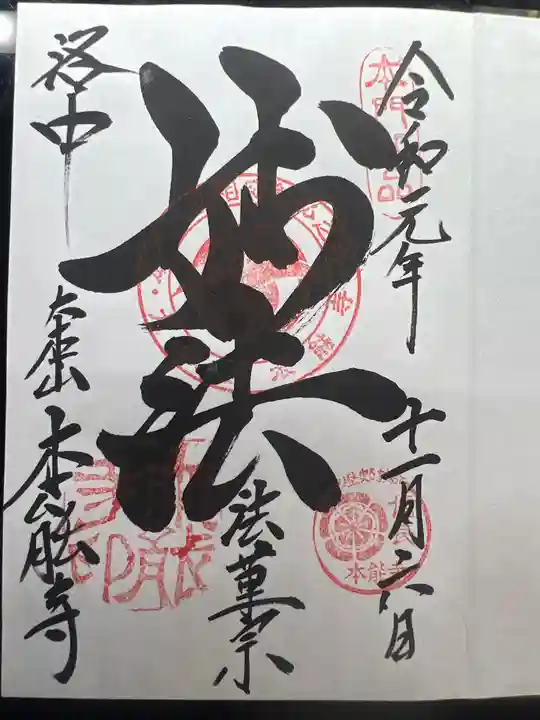 本門八品
令和元年
十一月
日
妙法
法華宗
洛中
大本山 本能寺
本能寺